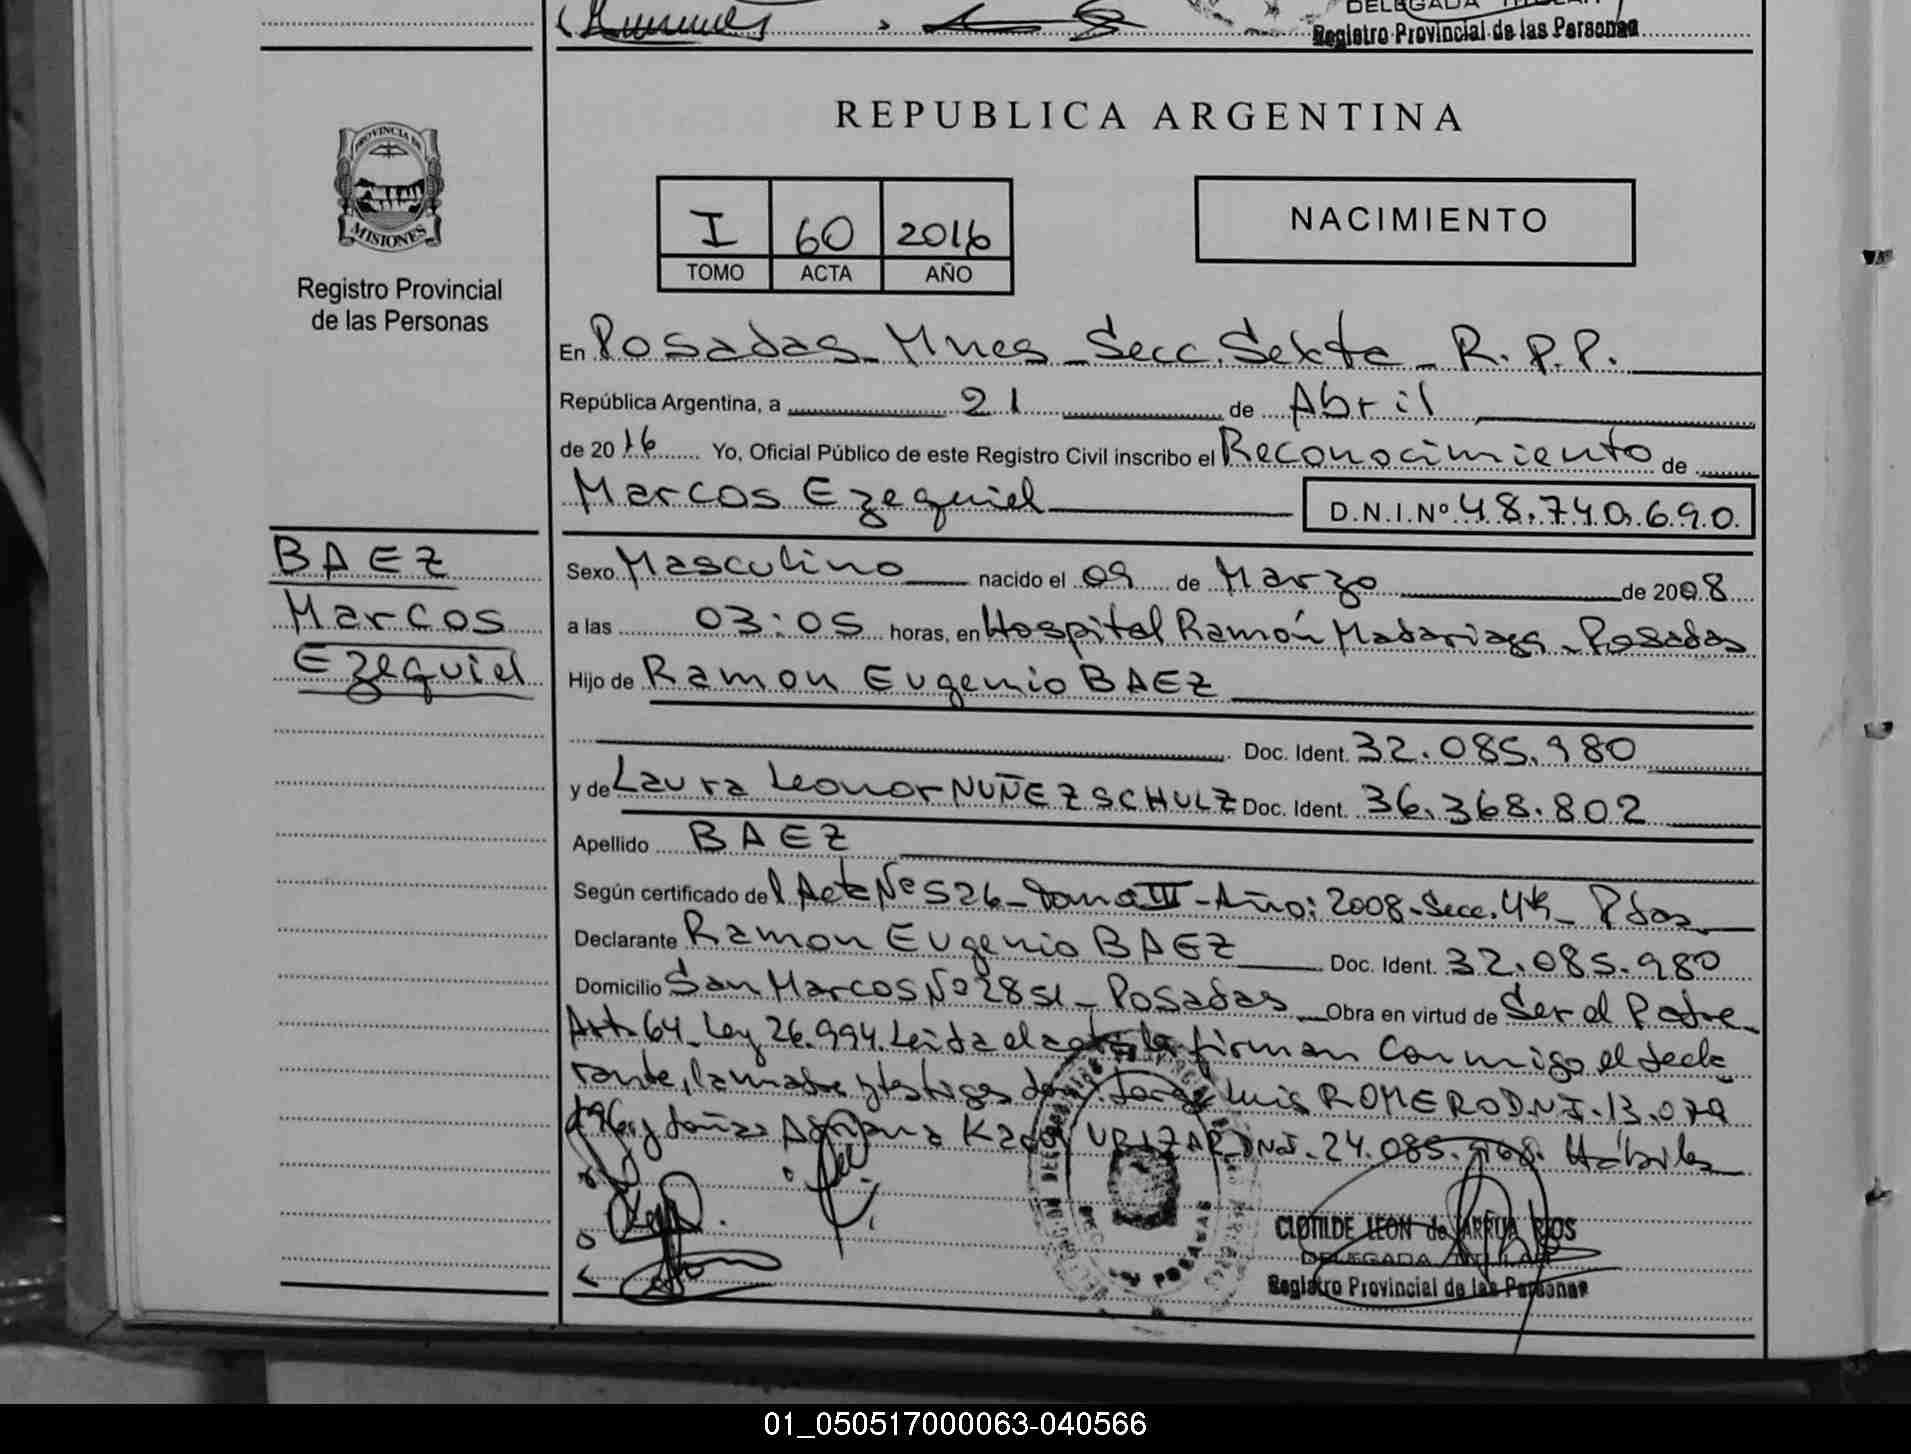 DELEGADA TITULAR
Registro Provincial de las Personas
REPUBLICA ARGENTINA
PROVINCIA DE
MISIONES
Registro Provincial
de las Personas
I 60 2016
TOMO ACTA AÑO
NACIMIENTO
En Posadas Mnes Secc. Sexta R.P.P.
República Argentina, a 21 de Abril
de 2016 Yo, Oficial Público de este Registro Civil inscribo el Reconocimiento de
Marcos Ezequiel D.N.I.Nº 48.740.690.
BAEZ
Marcos
Ezequiel
Sexo Masculino nacido el 09 de Marzo de 2008
a las 03:05 horas, en Hospital Ramón Madariaga - Posadas
Hijo de Ramon Eugenio BAEZ
Doc. Ident. 32.085.980
y de Laura Leonor NUÑEZ SCHULZ Doc. Ident. 36.368.802
Apellido BAEZ
Según certificado del Acta Nº 526 - Tomo III - Año: 2008 - Secc. 4ta - Pdas
Declarante Ramon Eugenio BAEZ Doc. Ident. 32.085.980
Domicilio San Marcos Nº 2851 - Posadas Obra en virtud de Ser el Padre
Art. 64 Ley 26.994. Leida el acta la firman Conmigo el decla
rante, la madre y testigos don: Jorge Luis ROMERO D.N.I. 13.079
y doña: Adriana URIZAR D.N.I. 24.085. Hábiles
POSADAS
CLOTILDE LEON de ARRUA RIOS
DELEGADA TITULAR
Registro Provincial de las Personas
01_050517000063-040566